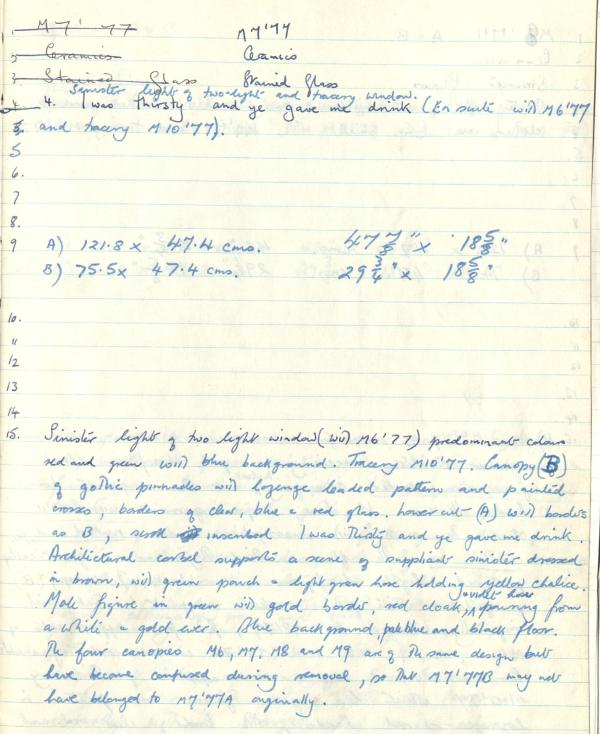 1. M7' 77 M7'77
2 Ceramics Ceramic
3. Stained Glass Stained Glass
Sinister light of two-light and tracery window.
4. 4. I was thirsty and ye gave me drink (En suite with M6'77
5. and tracery M10'77).
5
6.
7
8.
9 A) 121.8 x 47.4 cms. 47 7/8" x 18 5/8"
B) 75.5 x 47.4 cms. 29 3/4" x 18 5/8"
10.
11
12
13
14
15. Sinister light of two light window (with M6'77) predominant colours
red and green with blue background. Tracery M10'77. Canopy (B)
of gothic pinnacles with lozenge leaded pattern and painted
crosses, borders of clear, blue & red glass. Lower cut (A) with borders
as B, scroll inscribed I was Thirsty and ye gave me drink.
Architectural corbel supports a scene of suppliant sinister dressed
in brown, with green pouch & light green hose holding yellow chalice.
& violet hose
Male figure in green with gold border, red cloak, pouring from
a white & gold ewer. Blue background, pale blue and black floor.
Th four canopies M6, M7, M8 and M9 are of Th same design but
have become confused during removal, so that M7'77B may not
have belonged to M7'77A originally.